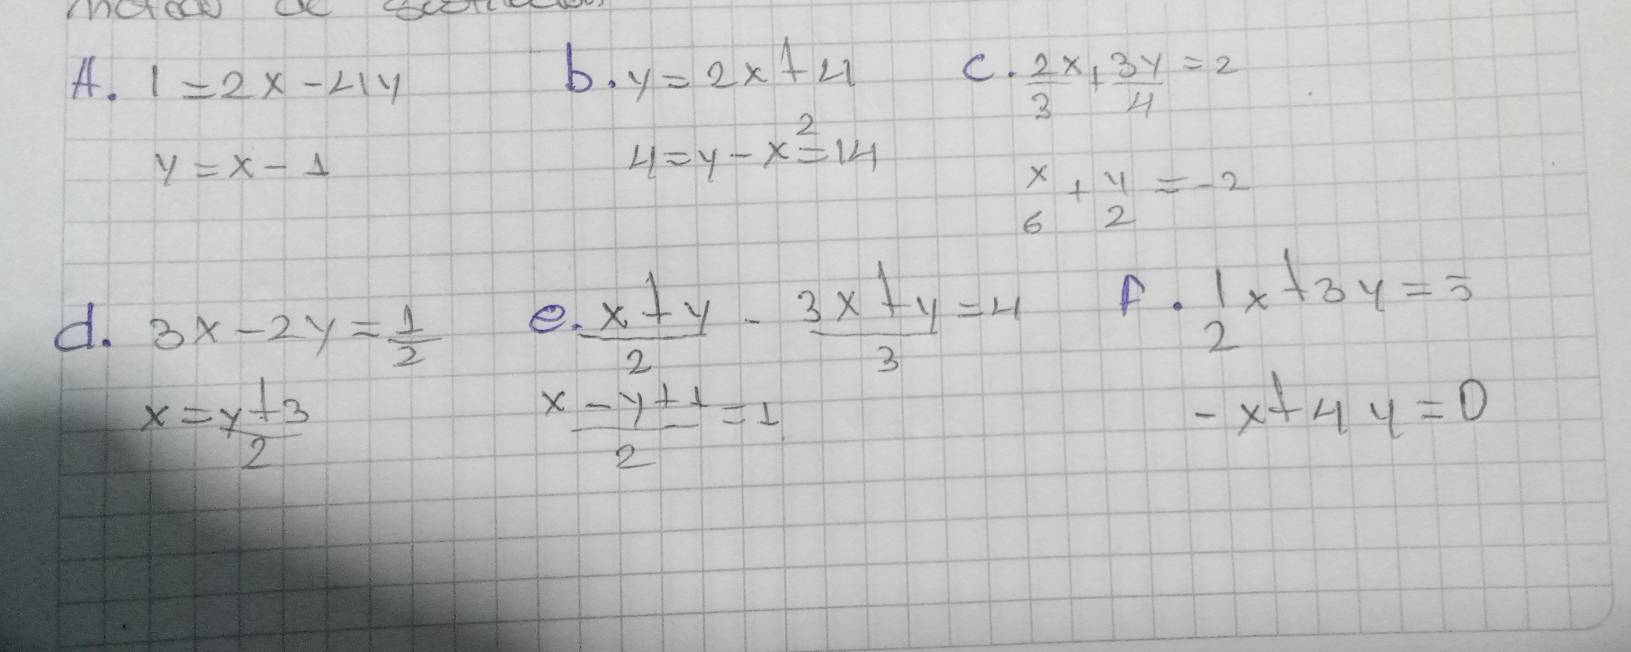 de
A. 1 = 2x - 4y
y = x - 1
b. y = 2x + 4
4 = y - x² = 14
c. 2x/3 + 3y/4 = 2
x/6 + y/2 = -2
d. 3x - 2y = 1/2
x = y+3/2
e. x+y/2 - 3x+y/3 = 4
x - y+1/2 = 1
f. 1/2 x + 3y = 5
- x + 4y = 0